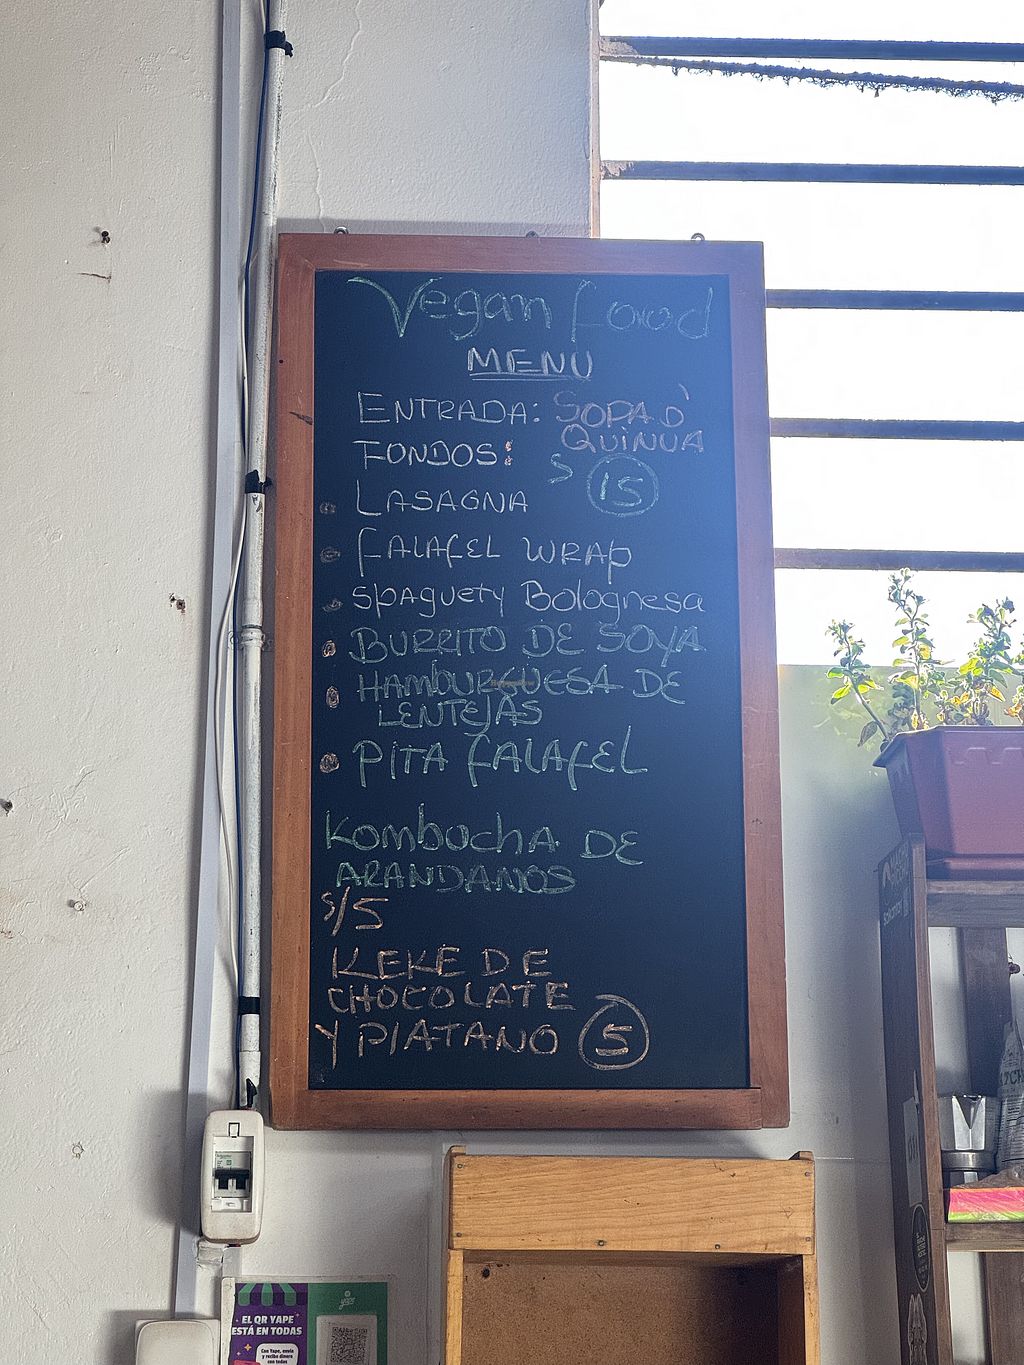 Vegan food
MENU
ENTRADA: SOPA D'
QUINUA
FONDOS:
S 15
LASAGNA
FALAFEL WRAP
SPAGUETY Bolognesa
BURRITO DE SOYA
HAMBURGUESA DE
LENTEJAS
PITA FALAFEL
Kombucha DE
ARANDANOS
S/5
KEKE DE
CHOCOLATE
Y PLATANO 5
yape
EL QR YAPE
ESTÁ EN TODAS
Con Yape, envía
y recibe dinero
con todas